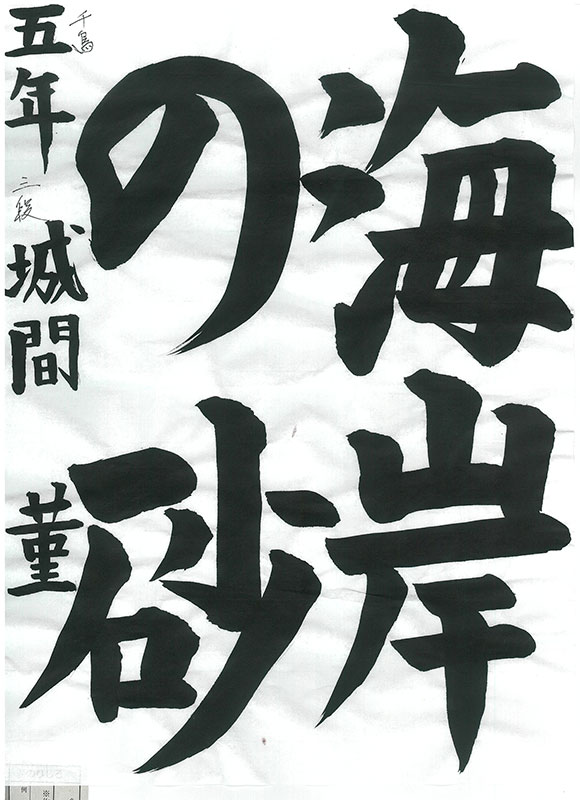 海岸
の砂
千鳥
五年 三段 城間 菫